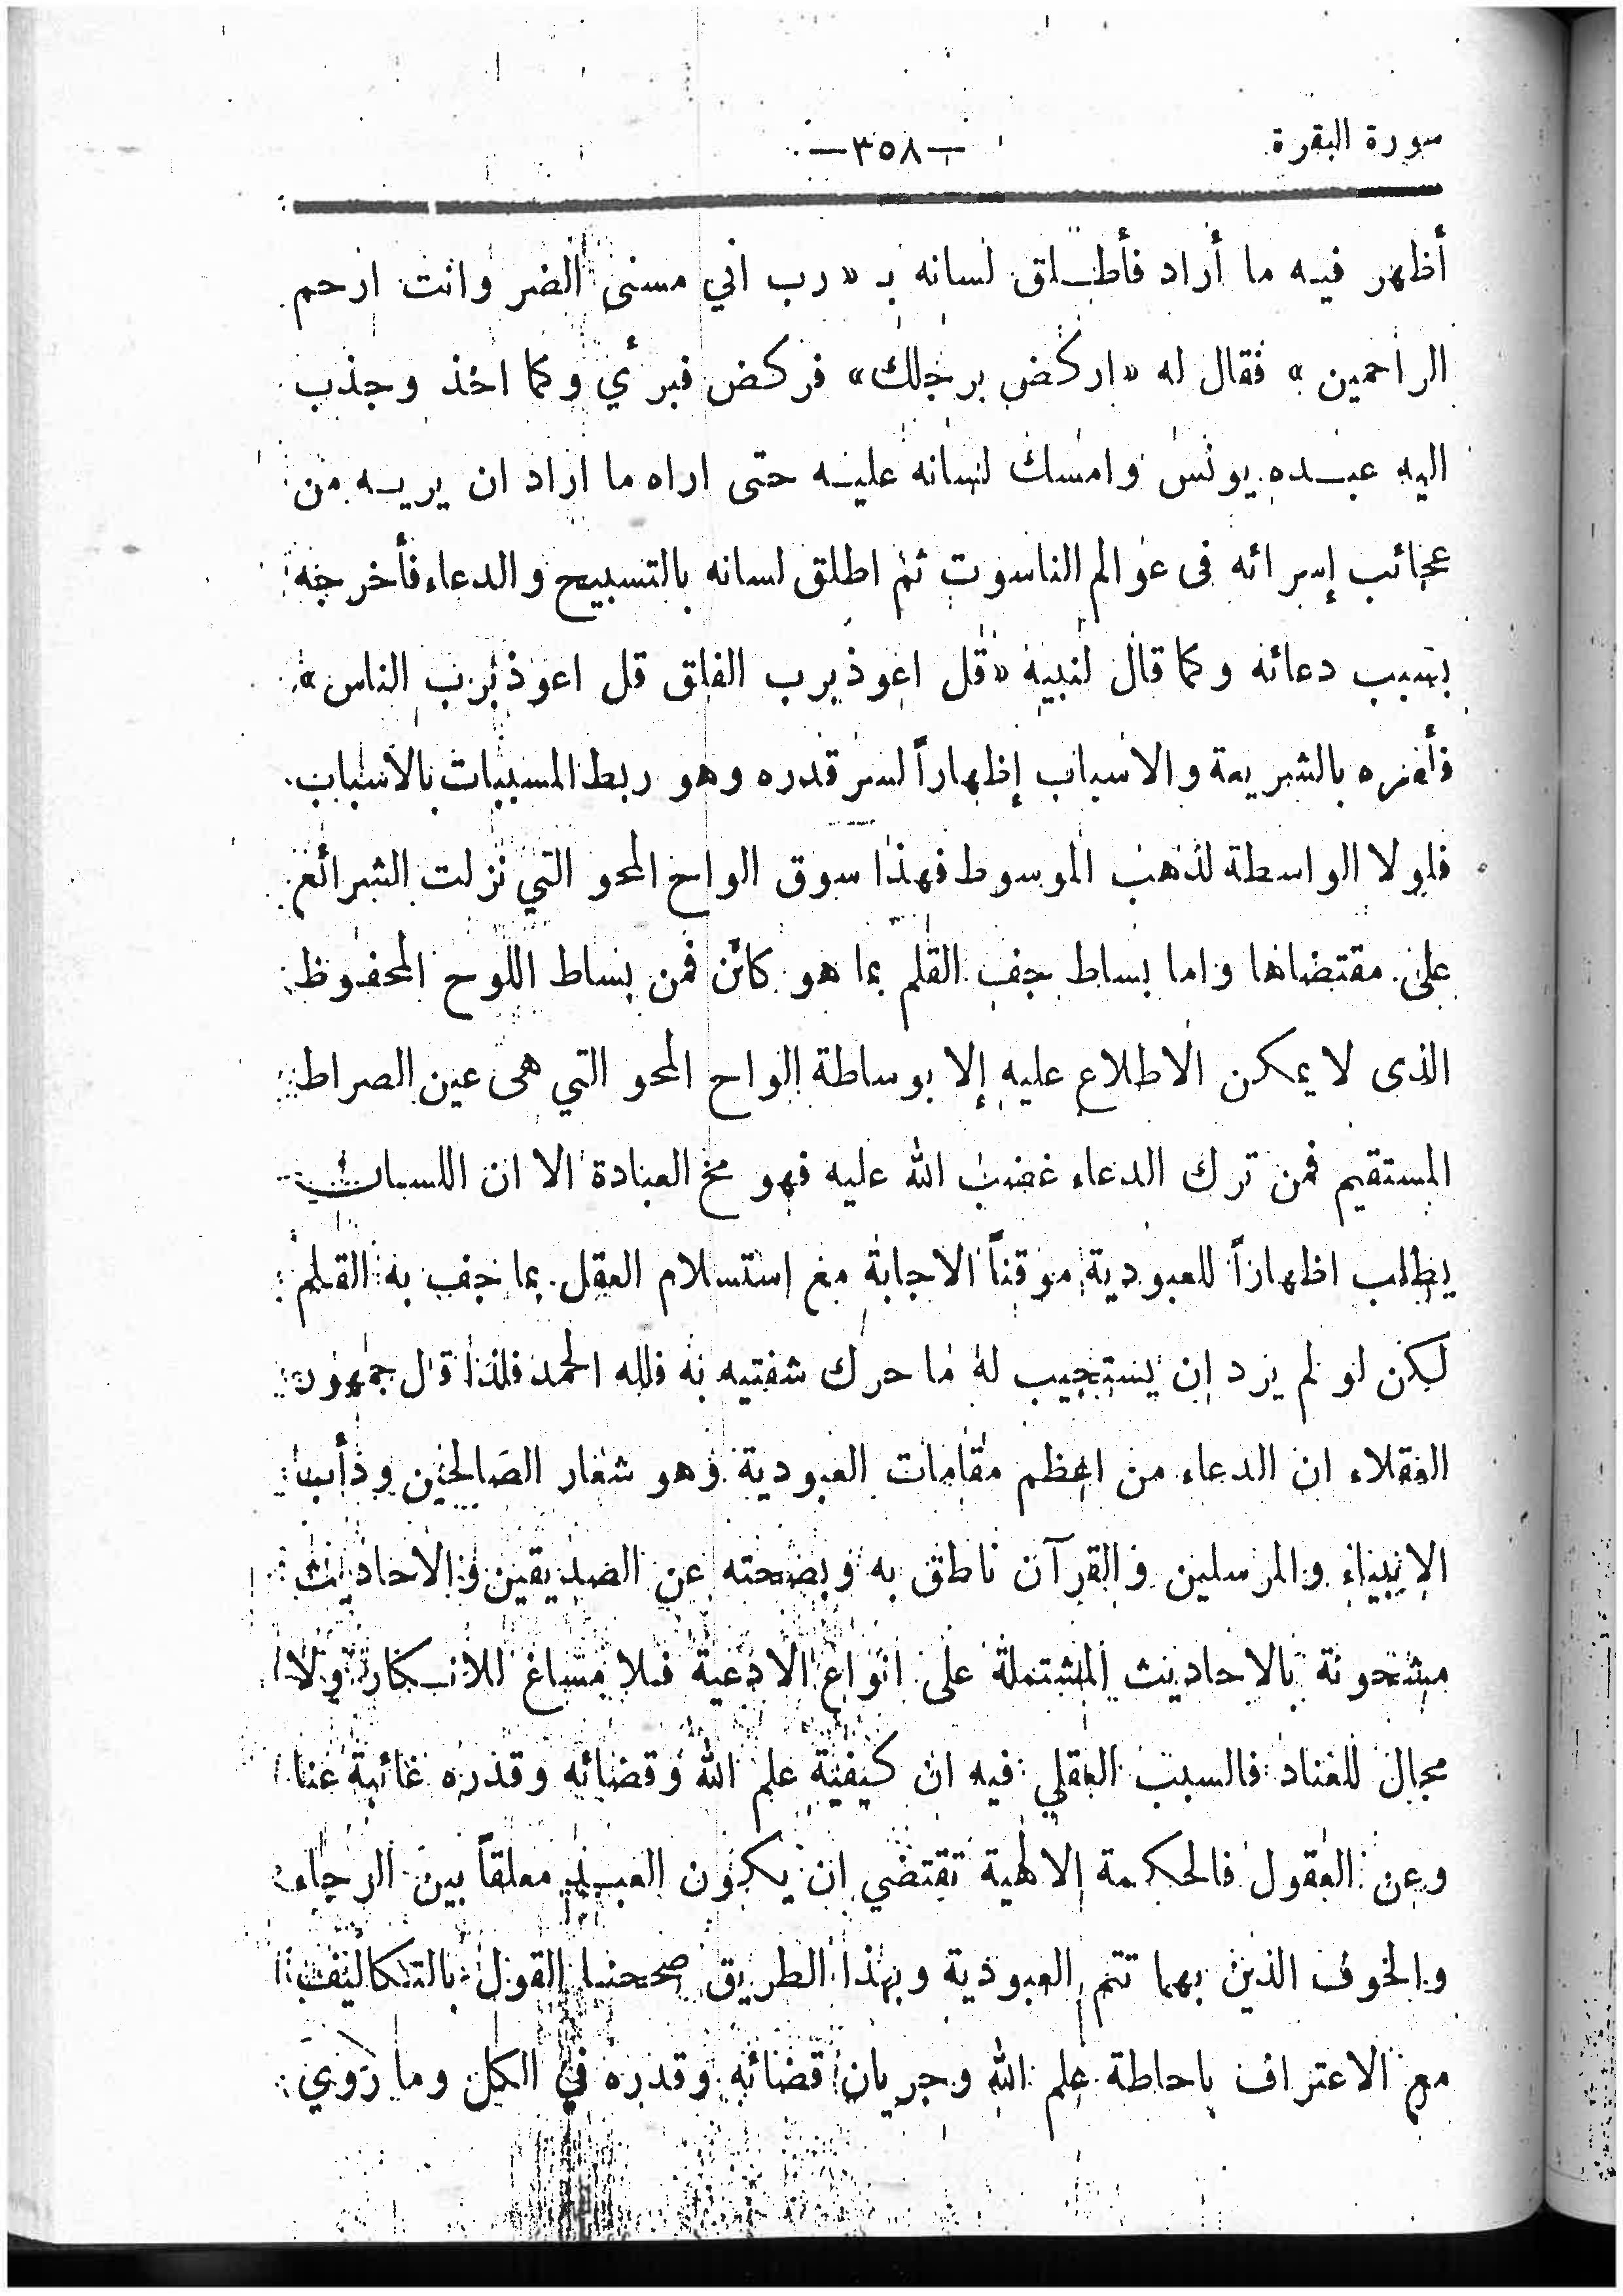 سورة البقرة
—٣٥٨—
أظهر فيه ما أراد فأطلق لسانه بـ «رب اني مسنى الضر وانت ارحم
الراحمين» فقال له «اركض برجلك» فركض فبرئ وكما اخذ وجذب
اليه عبده يونس وامسك لسانه عليه حتى اراه ما اراد ان يريه من
عجائب إسرائه فى عوالم الناسوت ثم اطلق لسانه بالتسبيح والدعاء فأخرجه
بسبب دعائه وكما قال لنبيه «قل اعوذ برب الفلق قل اعوذ برب الناس»
فأمره بالشريعة والاسباب إظهاراً لسر قدره وهو ربط المسببات بالاسباب.
فلولا الواسطة لذهب الموسوط فهذا سوق الواح المحو التي نزلت الشرائع
على مقتضاها واما بساط جف القلم بما هو كائن فمن بساط اللوح المحفوظ
الذى لا يمكن الاطلاع عليه إلا بوساطة الواح المحو التي هى عين الصراط
المستقيم فمن ترك الدعاء غضب الله عليه فهو مخ العبادة الا ان اللسان
يطلب اظهاراً للعبودية موقناً الاجابة مع استسلام العقل بما جف به القلم
لكن لو لم يرد ان يستجيب له ما حرك شفتيه به فلله الحمد فلذا قال جمهور
العقلاء ان الدعاء من اعظم مقامات العبودية وهو شعار الصالحين ودأب
الانبياء والمرسلين والقرآن ناطق به وبصحته عن الصديقين والاحاديث
مشحونة بالاحاديث المشتملة على انواع الادعية فلا مساغ للانكار ولا
مجال للعناد فالسبب العقلي فيه ان كيفية علم الله وقضائه وقدره غائبة عنا
وعن العقول فالحكمة الالهية تقتضي ان يكون العبد معلقاً بين الرجاء
والخوف الذين بهما تتم العبودية وبهذا الطريق صححنا القول بالتكاليف
مع الاعتراف باحاطة علم الله وجريان قضائه وقدره في الكل وما رَوِيَ